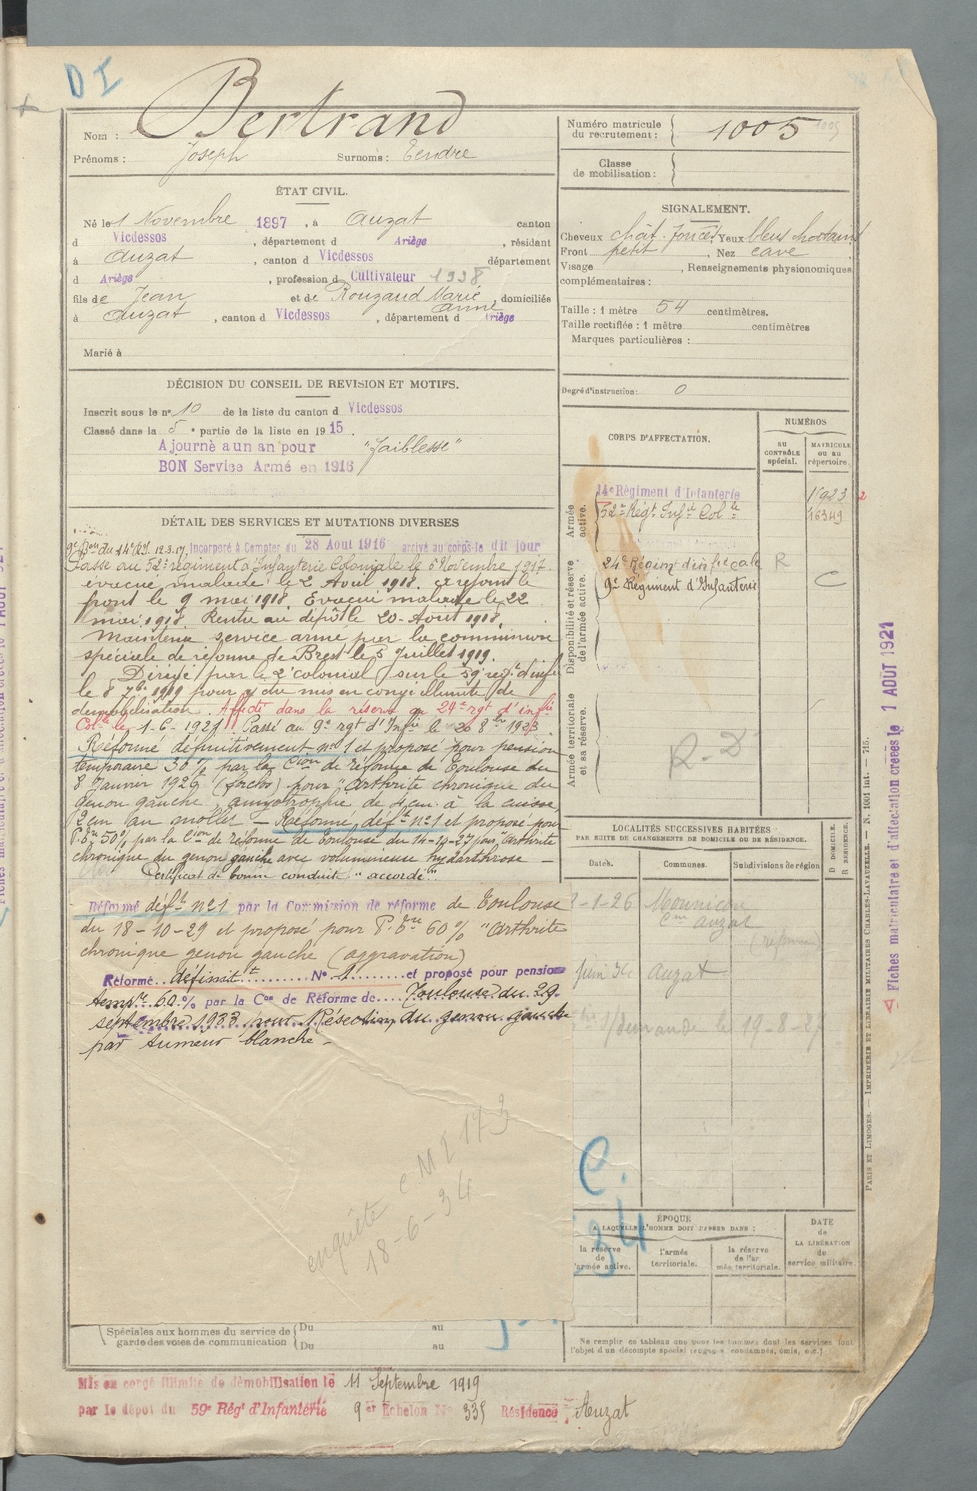 D I
Nom : Bertrand
Prénoms : Joseph Surnoms : Tendre
Numéro matricule du recrutement : 1005
Classe de mobilisation :
ÉTAT CIVIL.
Né le 1 Novembre 1897, à Auzat canton
d Vicdessos, département d Ariège, résidant
à Auzat, canton d Vicdessos département
d Ariège, profession d Cultivateur 1938
fils de Jean et de Rouzaud Marie Anne, domiciliés
à Auzat, canton d Vicdessos, département d Ariège
Marié à
SIGNALEMENT.
Cheveux chât. foncés Yeux bleus
Front petit Nez cave
Visage , Renseignements physionomiques
complémentaires :
Taille : 1 mètre 54 centimètres.
Taille rectifiée : 1 mètre centimètres
Marques particulières :
Degré d'instruction : 0
DÉCISION DU CONSEIL DE REVISION ET MOTIFS.
Inscrit sous le nº 10 de la liste du canton d Vicdessos
Classé dans la 5e partie de la liste en 1915.
Ajourné a un an pour "faiblesse"
BON Service Armé en 1916
DÉTAIL DES SERVICES ET MUTATIONS DIVERSES
9e Bon du 14e RI. 12.3.17. Incorporé à Compter du 28 Aout 1916 arrivé au corps le dit jour
Passé au 52e régiment d'Infanterie Coloniale le 6 Novembre 1917.
évacué malade le 2 Avril 1918. a rejoint le
front le 9 mai 1918. Evacué malade le 22
mai 1918. Rentré au dépôt le 20 Aout 1918.
Maintenu service armé par la commission
spéciale de réforme de Brest le 5 Juillet 1919.
Dirigé par le 2e colonial sur le 59e régt d'infie
le 8 7bre 1919 pour y être mis en congé illimité de
démobilisation. Affecté dans la réserve au 24e rgt d'infie
Colle le 1-6-1921. Passé au 9e rgt d'Infie le 20 8bre 1923.
Réformé définitivement nº1 et proposé pour pension
temporaire 30% par la Cion de réforme de Toulouse du
8 Janvier 1926 pour "Arthrite chronique du
genou gauche amyotrophie de 4 cm. à la cuisse
2 cm au mollet - Réformé déft nº1 et proposé pour
P. tre 50% par la Cion de réforme de Toulouse du 14-10-27 pour "Arthrite
chronique du genou gauche avec volumineuse hydarthrose -
Certificat de bonne conduite "accordé"
Réformé déft nº1 par la Commission de réforme de Toulouse
du 18-10-29 et proposé pour P. tre 60% "Arthrite
chronique genou gauche (aggravation)
Réformé définitt Nº 1 et proposé pour pension
tempre 60.% par la Con de Réforme de Toulouse du 29
septembre 1933 pour Résection du genou gauche
par tumeur blanche -
enquête CM 2 173
18-6-34
CORPS D'AFFECTATION.
NUMÉROS
AU CONTRÔLE spécial.
MATRICULE ou au répertoire.
Armée active.
14e Régiment d'Infanterie 1923 2
52e Régt Infie Colle 16349
Disponibilité et réserve de l'armée active.
24e Région d'infie cale R
9e Régiment d'Infanterie C
Armée territoriale et sa réserve.
R. D
LOCALITÉS SUCCESSIVES HABITÉES
PAR SUITE DE CHANGEMENTS DE DOMICILE OU DE RÉSIDENCE.
Dates. Communes. Subdivisions de région D DOMICILE. R RÉSIDENCE.
8-1-26 Mounicou
Cne Auzat
(réforme)
Juin 34 Auzat
s/demande le 19-8-27
C.
34
ÉPOQUE
A LAQUELLE L'HOMME DOIT PASSER DANS :
la réserve de l'armée active.
l'armée territoriale.
la réserve de l'armée territoriale.
DATE de LA LIBÉRATION du service militaire.
Spéciales aux hommes du service de garde des voies de communication
Du au
Du au
Ne remplir ce tableau que pour les hommes dont les services font
l'objet d'un décompte spécial (engagés, condamnés, omis, etc.)
Mis en congé illimité de démobilisation le 11 Septembre 1919
par le dépôt du 59e Régt d'Infanterie 9er Echelon Nº 335 Résidence Auzat
PARIS ET LIMOGES. — IMPRIMERIE ET LIBRAIRIE MILITAIRES CHARLES-LAVAUZELLE. — N. 1001 int. — 715.
Fiches matriculaire et d'affectation créées le 1 AOUT 1921